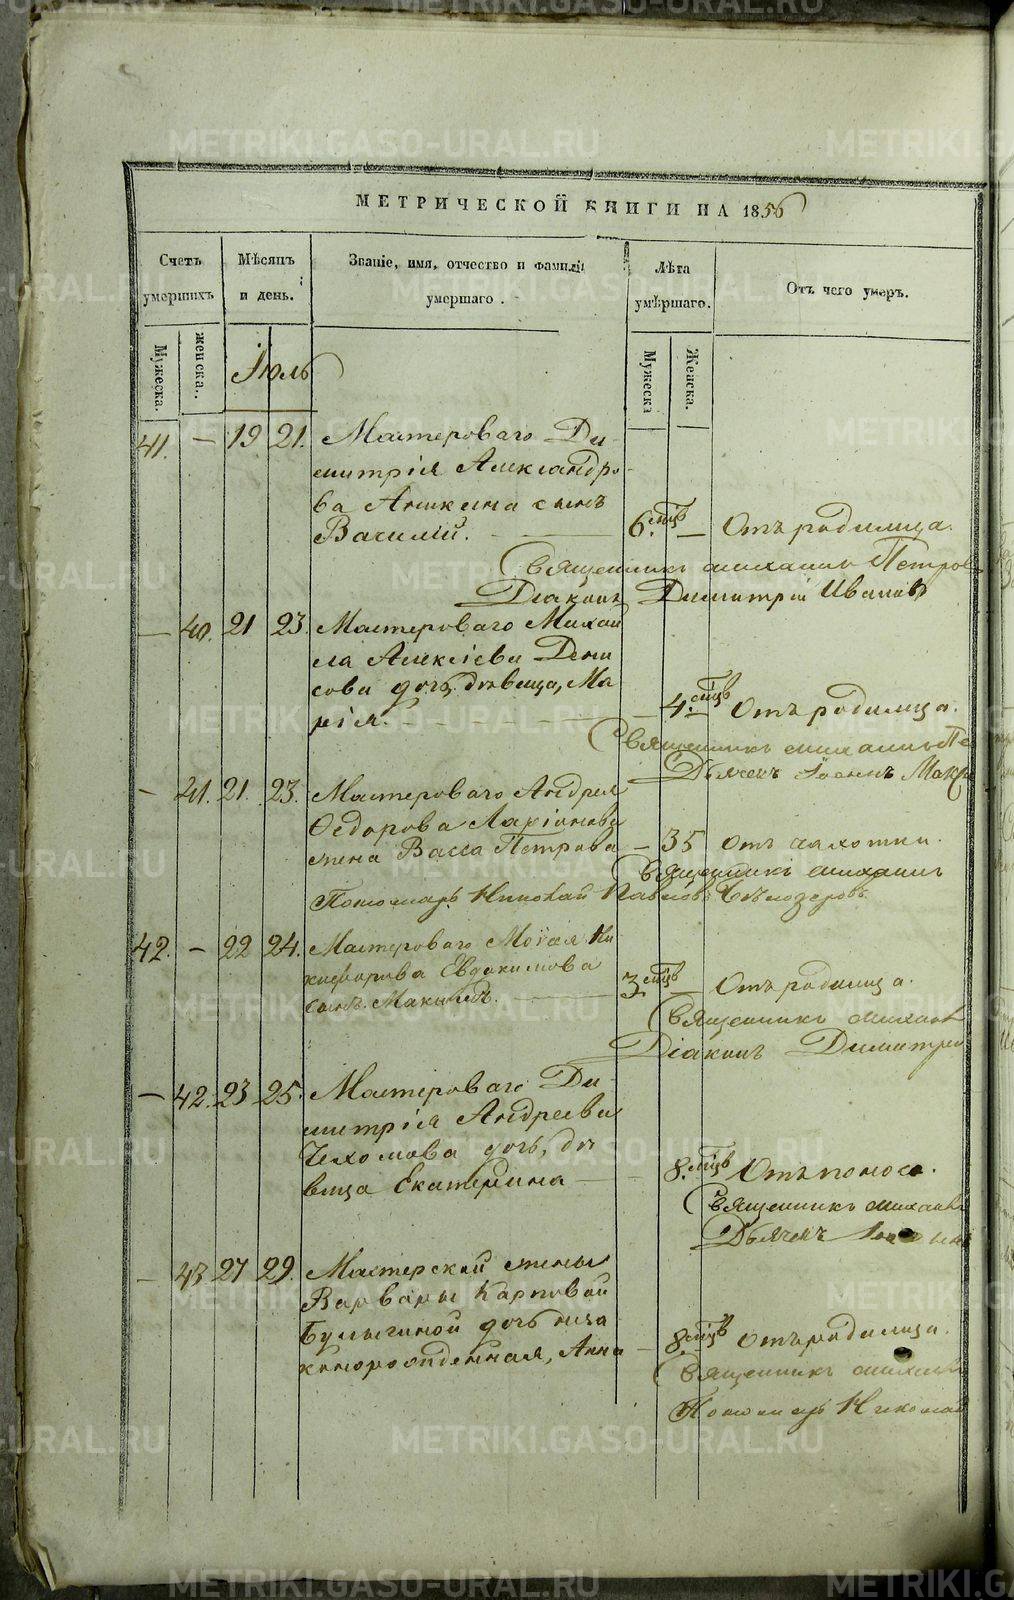 МЕТРИЧЕСКОЙ КНИГИ НА 1856
Счетъ умершихъ
Мужеска.
женска.
Мѣсяцъ и день.
Званіе, имя, отчество и фамилія умершаго.
Лѣта умѣршаго.
Мужеска
Женска.
Отъ чего умеръ.
Іюль
41. — 19 21. Мастероваго Ди-
митрія Александро-
ва Аникина сынъ
Василій. 6. мцѣ — Отъ родимца.
Священникъ Михаилъ Петров
Діаконъ Димитрій Иванов
— 40. 21 23. Мастероваго Михаи
ла Алексіева Дени
сова дочь, дѣвица, Ма
рія. — 4. мцѣ Отъ родимца.
Священникъ Михаилъ Пе
Дьячекъ Іоаннъ Мака
— 41. 21. 23. Мастероваго Андрея
Ѳедорова Ларіонова
жена Васса Петрова — 35 отъ чахотки.
Священникъ Михаилъ
Пономарь Николай Павловъ Бѣлозеровъ
42. — 22 24. Мастероваго Моісея Ни
кифорова Евдокимова
сынъ Макимъ. 3 мцѣ — Отъ родимца.
Священникъ Михаил
Діаконъ Димитрій
— 42. 23 25. Мастероваго Ди-
митрія Андреева
дочь, дѣ
вица Екатерина — 8. мцѣ Отъ поноса.
Священникъ Михаил
Дьячекъ
— 43 27 29. Мастерской жены
Варвары Карповой
Булыгиной дочь неза
коннорожденная, Анна — 8 мцѣ Отъ родимца.
Священникъ Михаил
Пономарь Николай
METRIKI.GASO-URAL.RU